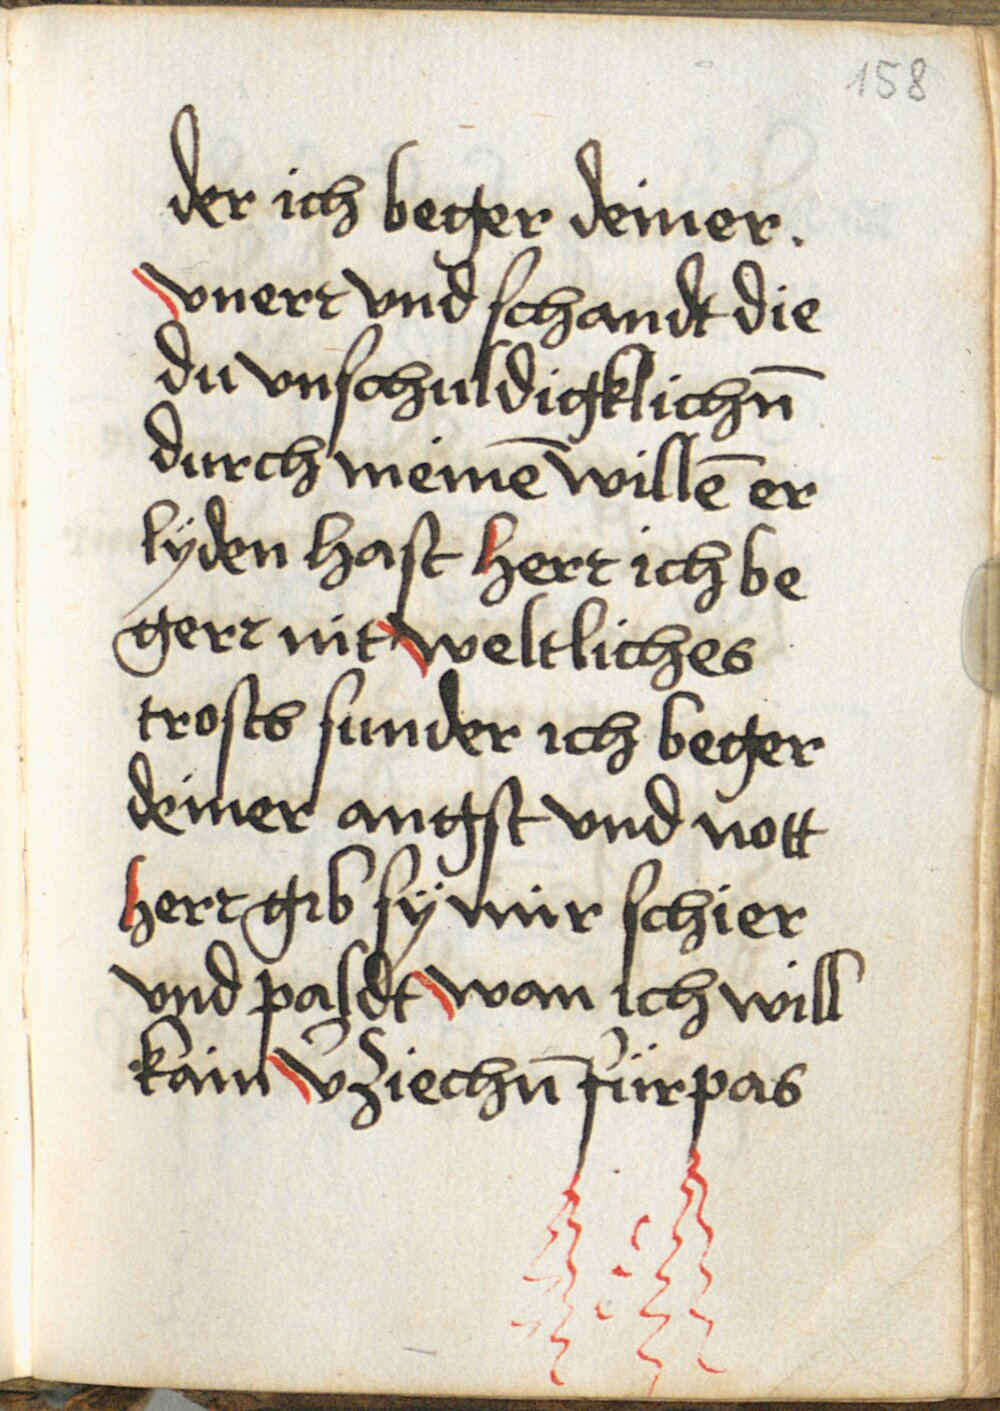 158
der ich beger deiner.
vnerr vnd schandt die
du vnschuldigklichn̄
durch meinē willē er
lÿden hast herr ich be
gerr nit weltliches
trosts sunder ich beger
deiner angst vnd nott
herr gib sÿ mir schier
vnd paldt wan ich will
kain v̉ziechn̄ fürpas